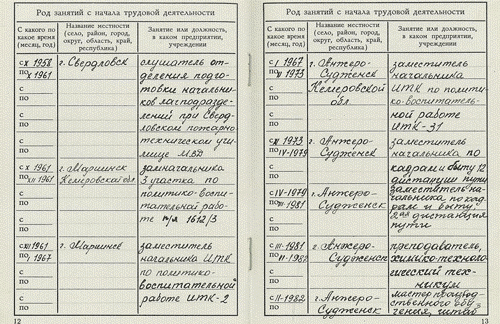 Род занятий с начала трудовой деятельности
С какого по какое время (месяц, год)
Название местности (село, район, город, округ, область, край, республика)
Занятие или должность, в каком предприятии, учреждении
с X 1958
по X 1961
г. Свердловск
слушатель от-
деления подго-
товки начальни-
ков лагподразде-
лений при Сверд-
ловском пожарно-
техническом учи-
лище МВД
с X 1961
по XII 1961
г. Мариинск
Кемеровской обл.
замначальника
3 участка по
политико-воспи-
тательной рабо-
те п/я 1612/3
с XII 1961
по I 1967
г. Мариинск
заместитель
начальника ИТК
по политико-
воспитательной
работе ИТК-2
12
Род занятий с начала трудовой деятельности
С какого по какое время (месяц, год)
Название местности (село, район, город, округ, область, край, республика)
Занятие или должность, в каком предприятии, учреждении
с I 1967
по 1973
г. Анжеро-
Судженск
Кемеровской
обл.
заместитель
начальника
ИТК по полити-
ко-воспитатель-
ной работе
ИТК-31
с 1973
по IV-1979
г. Анжеро-
Судженск
заместитель
начальника по
кадрам и быту 12
дистанции пути
с IV-1979
по III-1981
г. Анжеро-
Судженск
заместитель на-
чальника по кад-
рам и быту
дистанция
пути
с III-1981
по II-1982
г. Анжеро-
Судженск
преподаватель,
химико-техноло-
гический тех-
никум
с II-1982
по
г. Анжеро-
Судженск
мастер производ-
ственного обу-
чения,
13